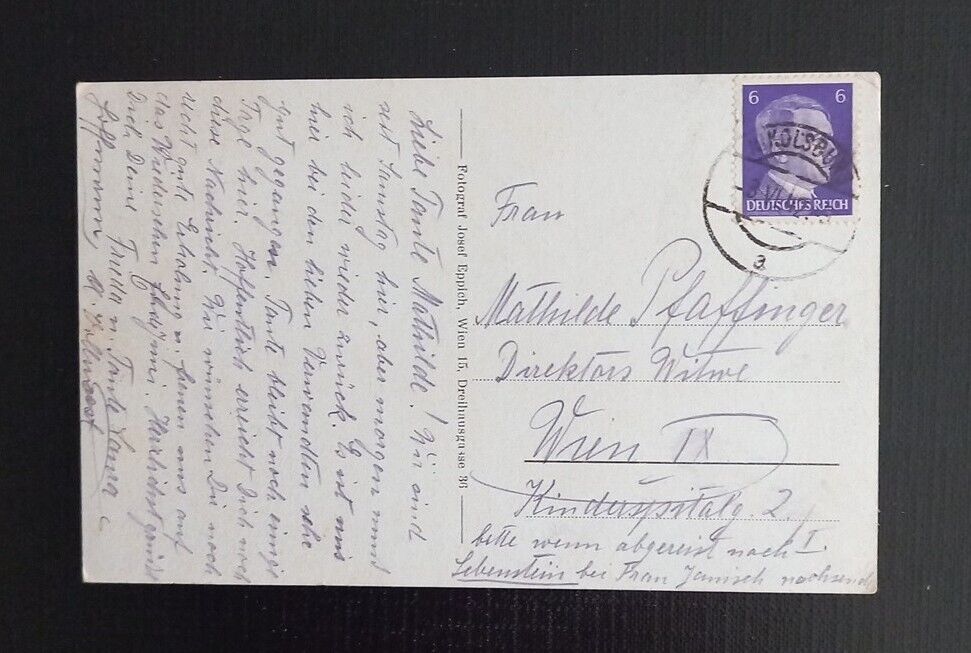 Liebe Tante Mathilde! Wir sind
seit Samstag hier, aber morgen muss
ich leider wieder zurück. Es ist uns
hier bei den lieben Verwandten sehr
gut gegangen. Tante bleibt noch einige
Tage hier. Hoffentlich erreicht Dich noch
diese Nachricht. Wir wünschen Dir noch
recht gute Erholung u. freuen uns auf
das Wiedersehen. Herzlichst grüsst
Dich Deine Trulla u. Tante Laura
Hoffmann
Fotograf Josef Eppich, Wien 15, Dreihausgasse 36
6 6
DEUTSCHES REICH
KOLSBU
a
Frau
Mathilde Pfaffinger
Direktors Witwe
Wien IX
Kinderspitalg. 2.
bitte wenn abgereist nach I.
Sebenstein bei Frau Janisch nachsend